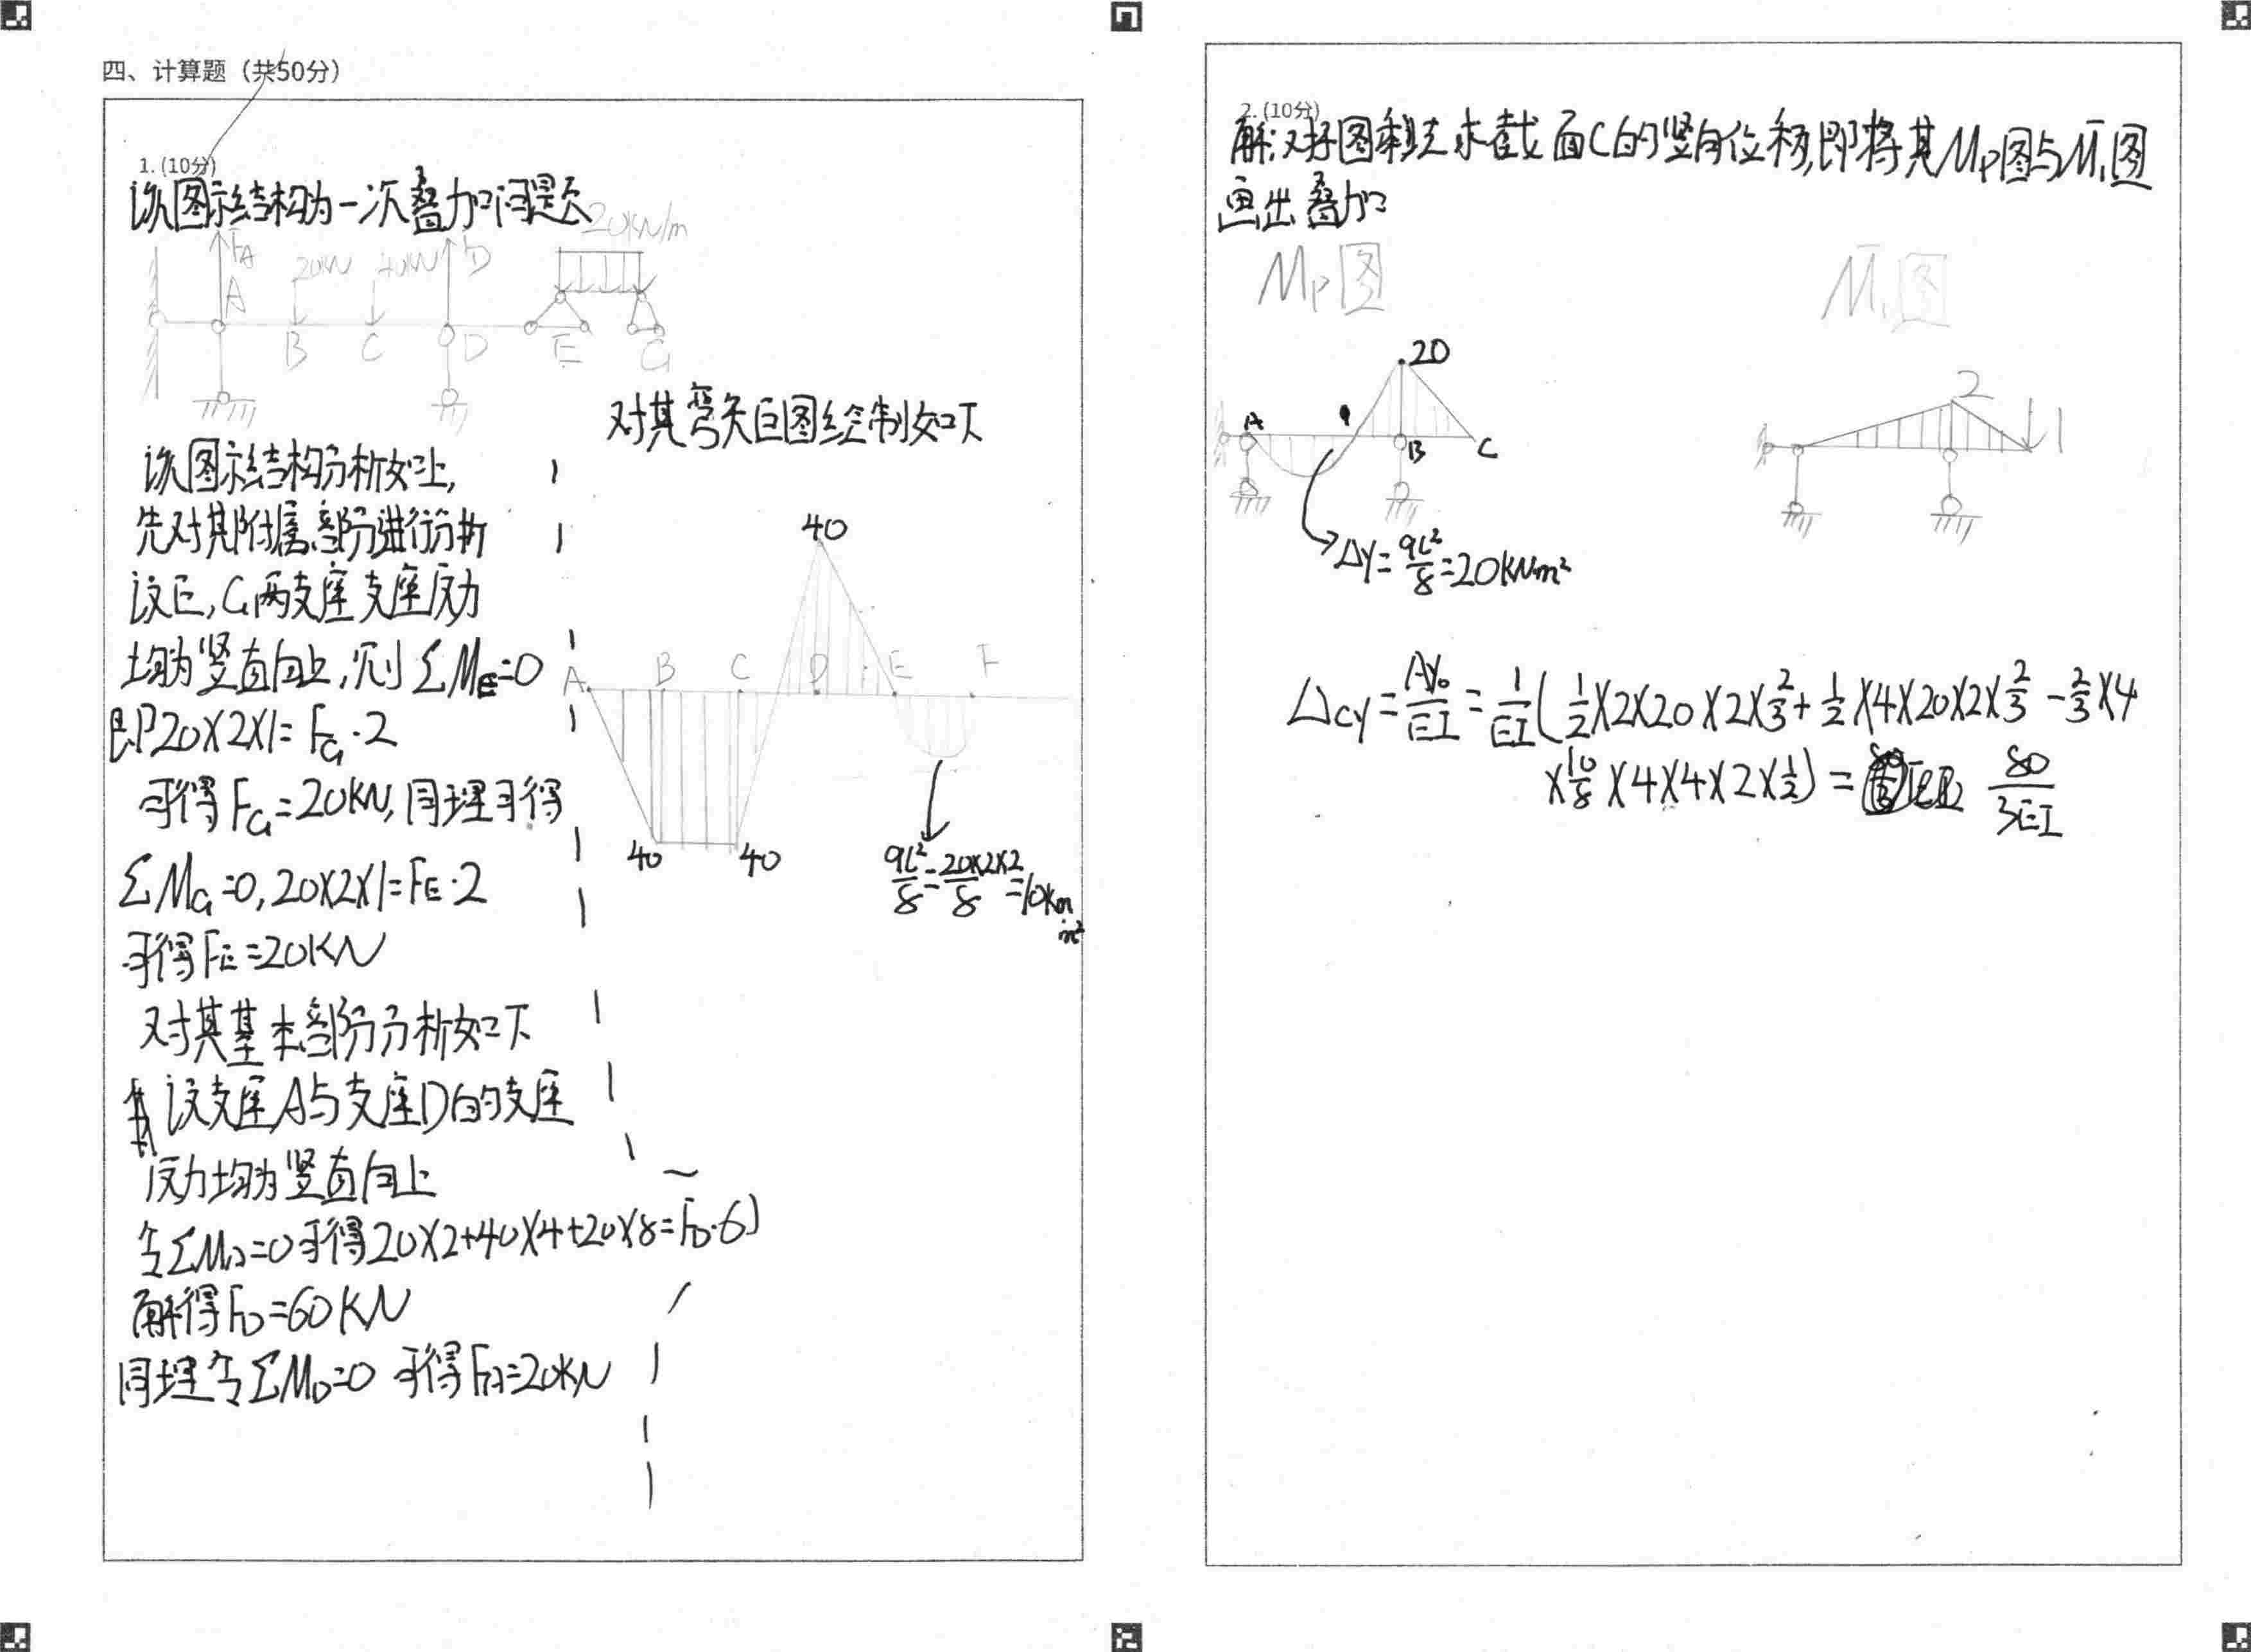 四、计算题（共50分）
1.(10分)
该图示结构为一次叠加问题
20kN/m
FA
20kN
40kN
FD
A
B
C
D
E
G
对其弯矩图绘制如下
该图示结构分析如上,
先对其附属部分进行分析
设E,G两支座支座反力
均为竖直向上,则ΣME=0
即20×2×1=FG·2
可得FG=20KN,同理可得
ΣMG=0,20×2×1=FE·2
可得FE=20KN
对其基本部分分析如下
设支座A与支座D的支座
反力均为竖直向上
令ΣMA=0可得20×2+40×4+20×8=FD·6
解得FD=60KN
同理令ΣMD=0 可得FA=20KN
40
A B C D E F
40 40
qL²/8=20×2×2/8=10KN m²
2.(10分)
解:对于图乘法求截面C的竖向位移,即将其MP图与M̄1图
画出叠加
MP图
M̄1图
20
A
B
C
2
1
Δy=qL²/8=20KNm²
ΔCY=Ay₀/EI=1/EI(1/2×2×20×2×2/3+1/2×4×20×2×2/3-2/3×4
×10/8×4×4×2×1/2)= 80/3EI